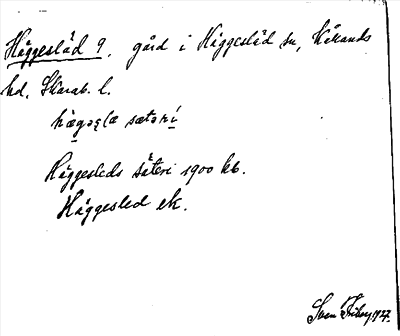 Häggesläd 9. gård i Häggesläd sn, Kållands
hd, Skarab. l.
hägəslæ sætəri
Häggesleds säteri 1900 kb.
Häggesled ek.
Sven 1927.